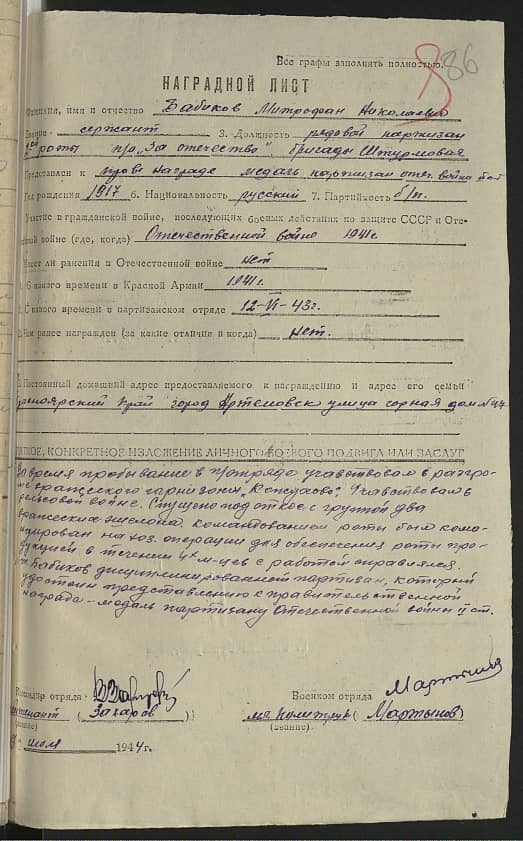 86
Все графы заполнять полностью.
НАГРАДНОЙ ЛИСТ
Фамилия, имя и отчество Бабиков Митрофан Николаевич
Звание - сержант 3. Должность рядовой партизан
роты п/о "За отечество", бригады Штурмовая
Представлен к награде медаль партизан отеч. война
Год рождения 1917 6. Национальность русский 7. Партийность б/п.
Участие в гражданской войне, последующих боевых действиях по защите СССР и Оте-
ной войне (где, когда) Отечественной войне 1941г.
Имеет ли ранения в Отечественной войне нет
С какого времени в Красной Армии 1941г.
С какого времени в партизанском отряде 12-VI-43г.
Чем ранее награжден (за какие отличия и когда) нет.
Постоянный домашний адрес предоставляемого к награждению и адрес его семьи
Красноярский край город Артемовск улица горная дом № 47
КРАТКОЕ, КОНКРЕТНОЕ ИЗЛОЖЕНИЕ ЛИЧНОГО БОЕВОГО ПОДВИГА ИЛИ ЗАСЛУГ
За время пребывание в п/отряде учавствовал в разгро-
ме вражеского гарнизона Учавствовал в
рельсовой войне. Спущено под откос с группой два
вражеских эшелона. Командованием роты был кома-
ндирован на хоз. операции для обеспечения роты про-
дукцией в течении 4х м-цев с работой справлялся.
т. Бабиков дисциплинированный партизан, который
удостоин представлению к правительственной
награда - медаль партизану Отечественной войны II ст.
Командир отряда: Военком отряда Мартынов
лейтенант (Захаров) мл. политрук (Мартынов)
(звание) (звание)
июля 1944г.